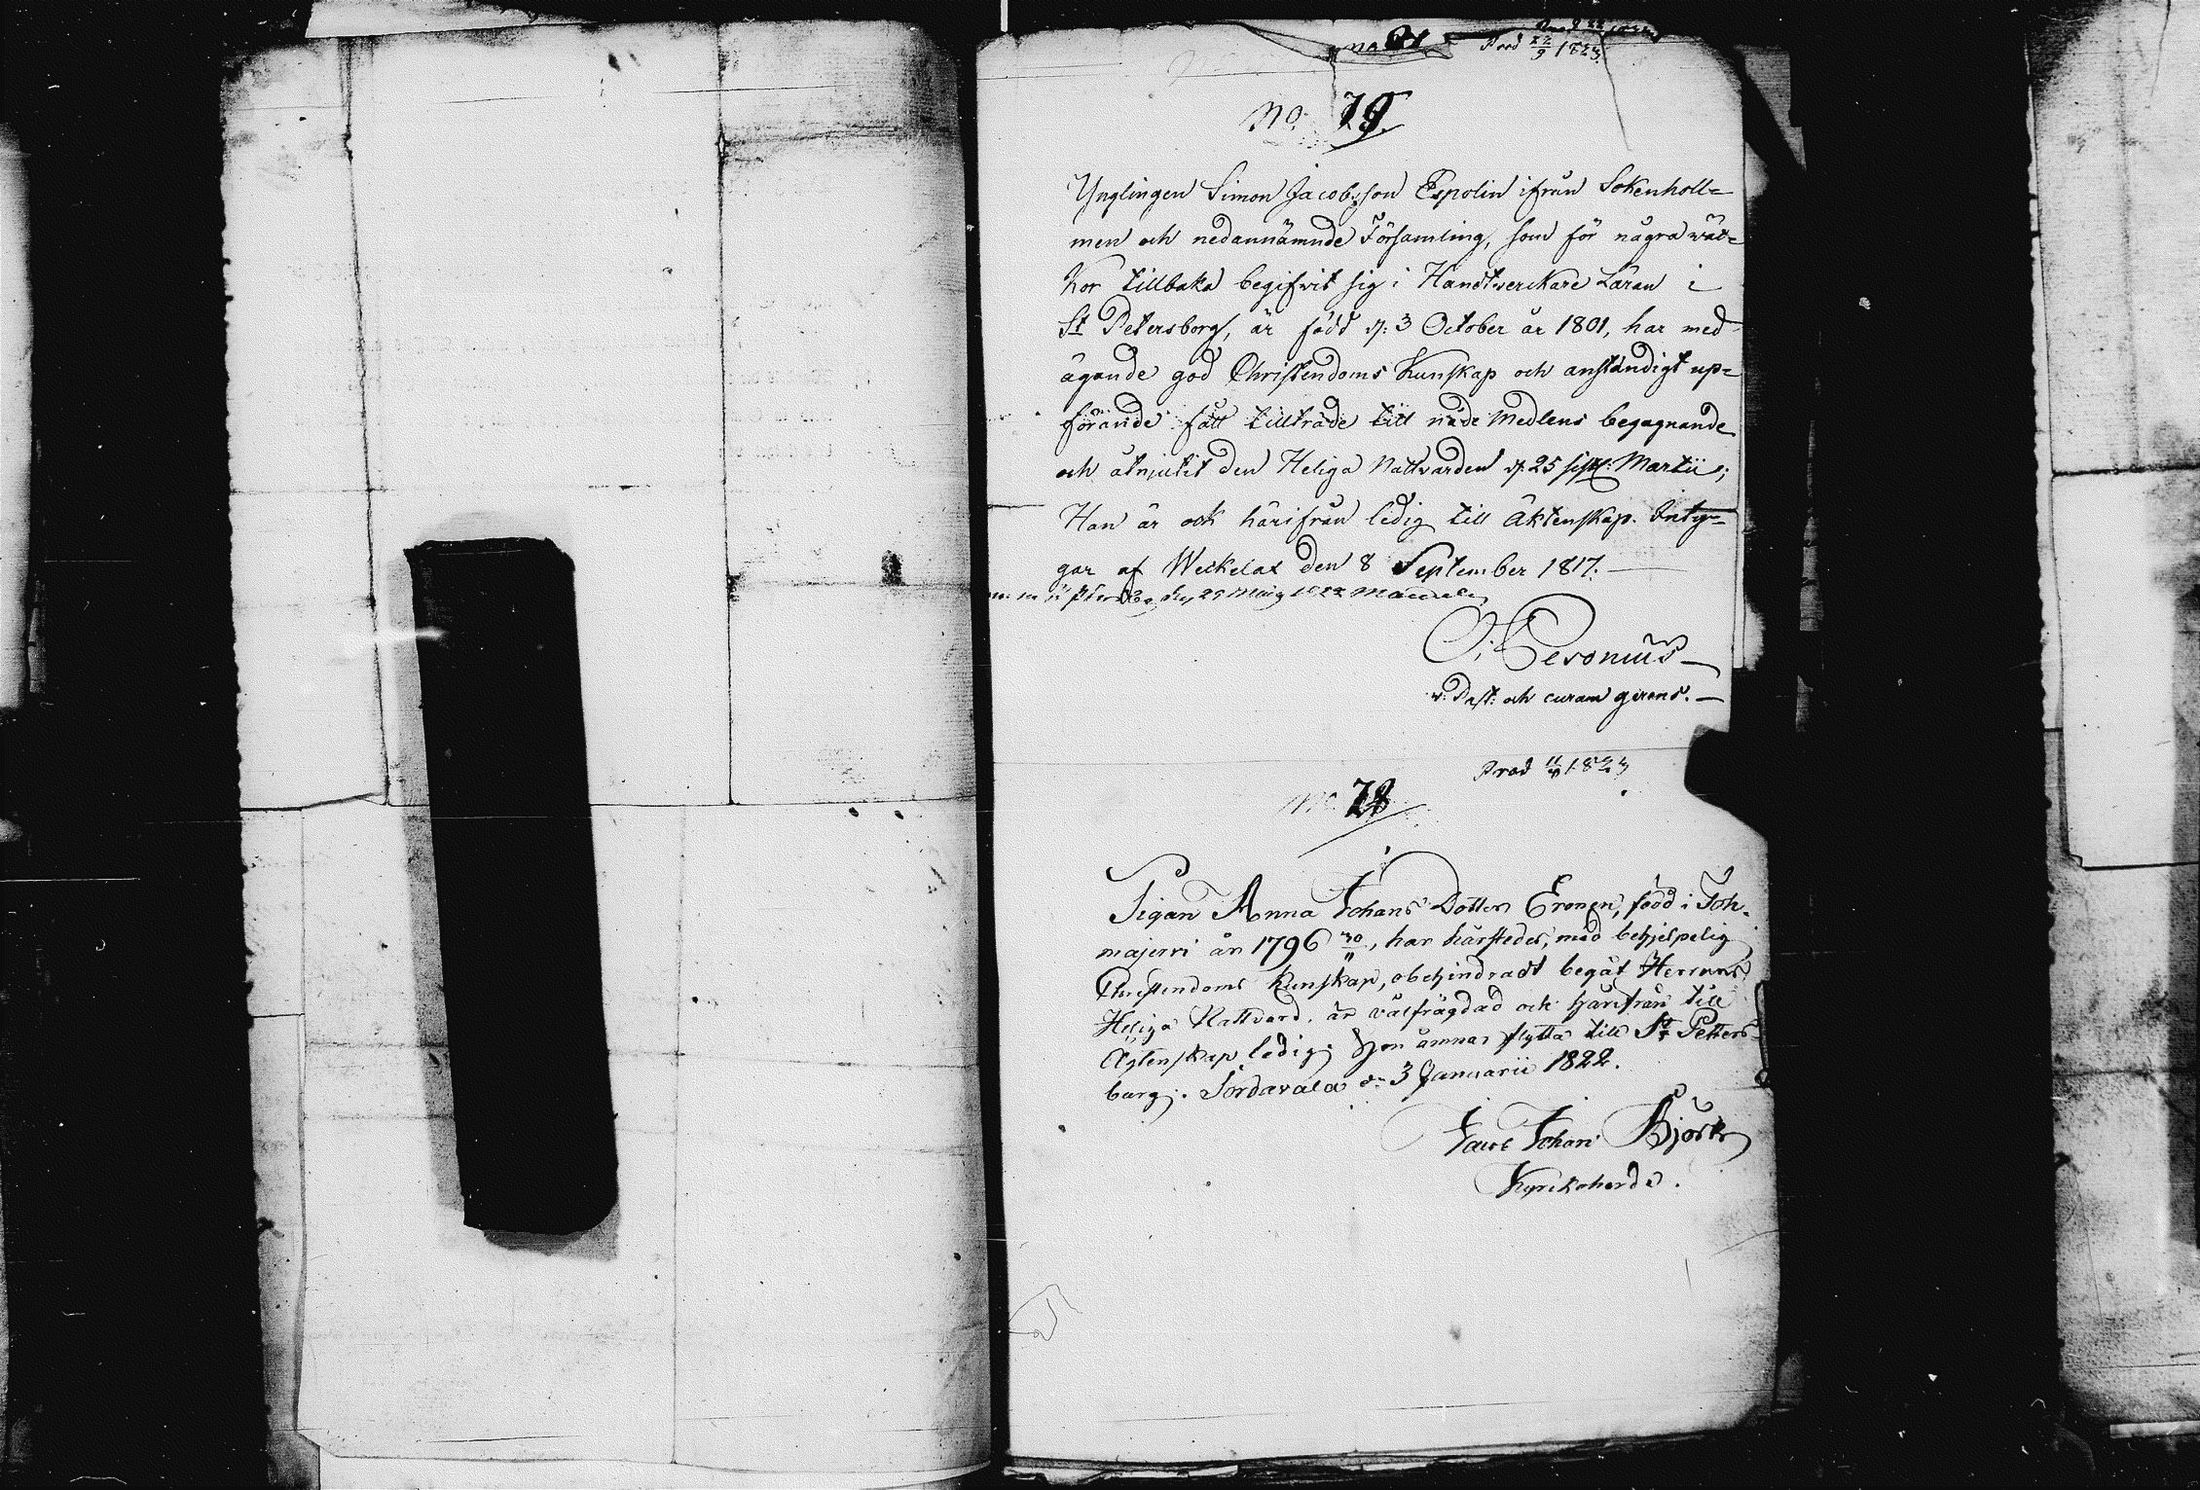 no 81 Prod 22/9 1823.
No. 79.
Ynglingen Simon Jacobsson Espolin ifrån Sokenholl=
men och nedannämnde Församling, som för några wäc=
kor tillbaka begifvit sig i Handtwerckare Läran i
St Petersborg, är född d: 3 October år 1801, har med
ägande god Christendoms Kunskap och anständigt up=
förande fått tillträde till nåde Medlens begagnande
och åtnjutit den Heliga Nattvarden d: 25 sistl: Martii;
Han är ock härifrån ledig till Äktenskap. Inty=
gar af Weckelax den 8 September 1817.
den 29 Maij 1822
Pesonius
v: Past: och curam gerens.
Prod 11/9 1823
No. 78
Pigan Anna Johans Dotter Eronen, född i Toh-
majervi år 1796 30/11, har härstedes, med behjelpelig
Christendoms Kunskap, obehindradt begåt Herrans
Heliga Nattvard, är välfrägdad och härifrån till
Ägtenskap ledig. Hon ämnar flytta till St Petters-
burg. Sordavala d: 3 Januarii 1822.
Jacob Johan Björk
Kyrkoherde.